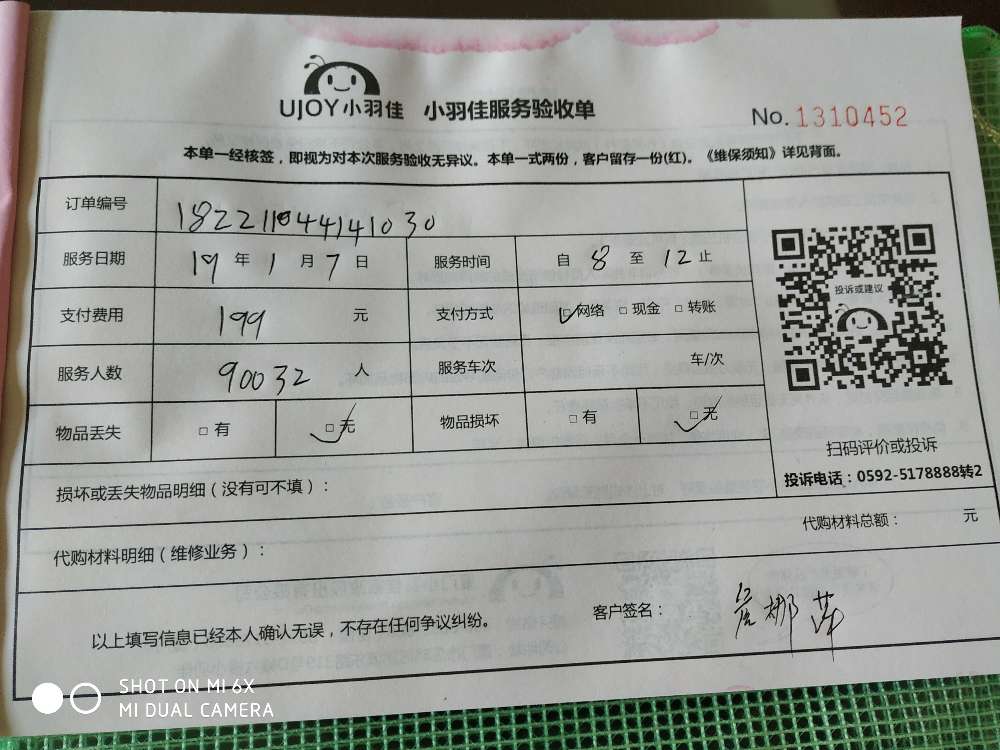 UJOY小羽佳 小羽佳服务验收单
No. 1310452
本单一经核签，即视为对本次服务验收无异议。本单一式两份，客户留存一份(红)。《维保须知》详见背面。
订单编号
服务日期 19 年 1 月 7 日 服务时间 自 8 至 12 止
投诉或建议
支付费用 199 元 支付方式 □网络 □现金 □转账
服务人数 90032 人 服务车次 车/次
物品丢失 □有 □无 物品损坏 □有 □无
扫码评价或投诉
投诉电话：0592-5178888转2
损坏或丢失物品明细（没有可不填）：
代购材料总额： 元
代购材料明细（维修业务）：
客户签名：
以上填写信息已经本人确认无误，不存在任何争议纠纷。
SHOT ON MI 6X
MI DUAL CAMERA